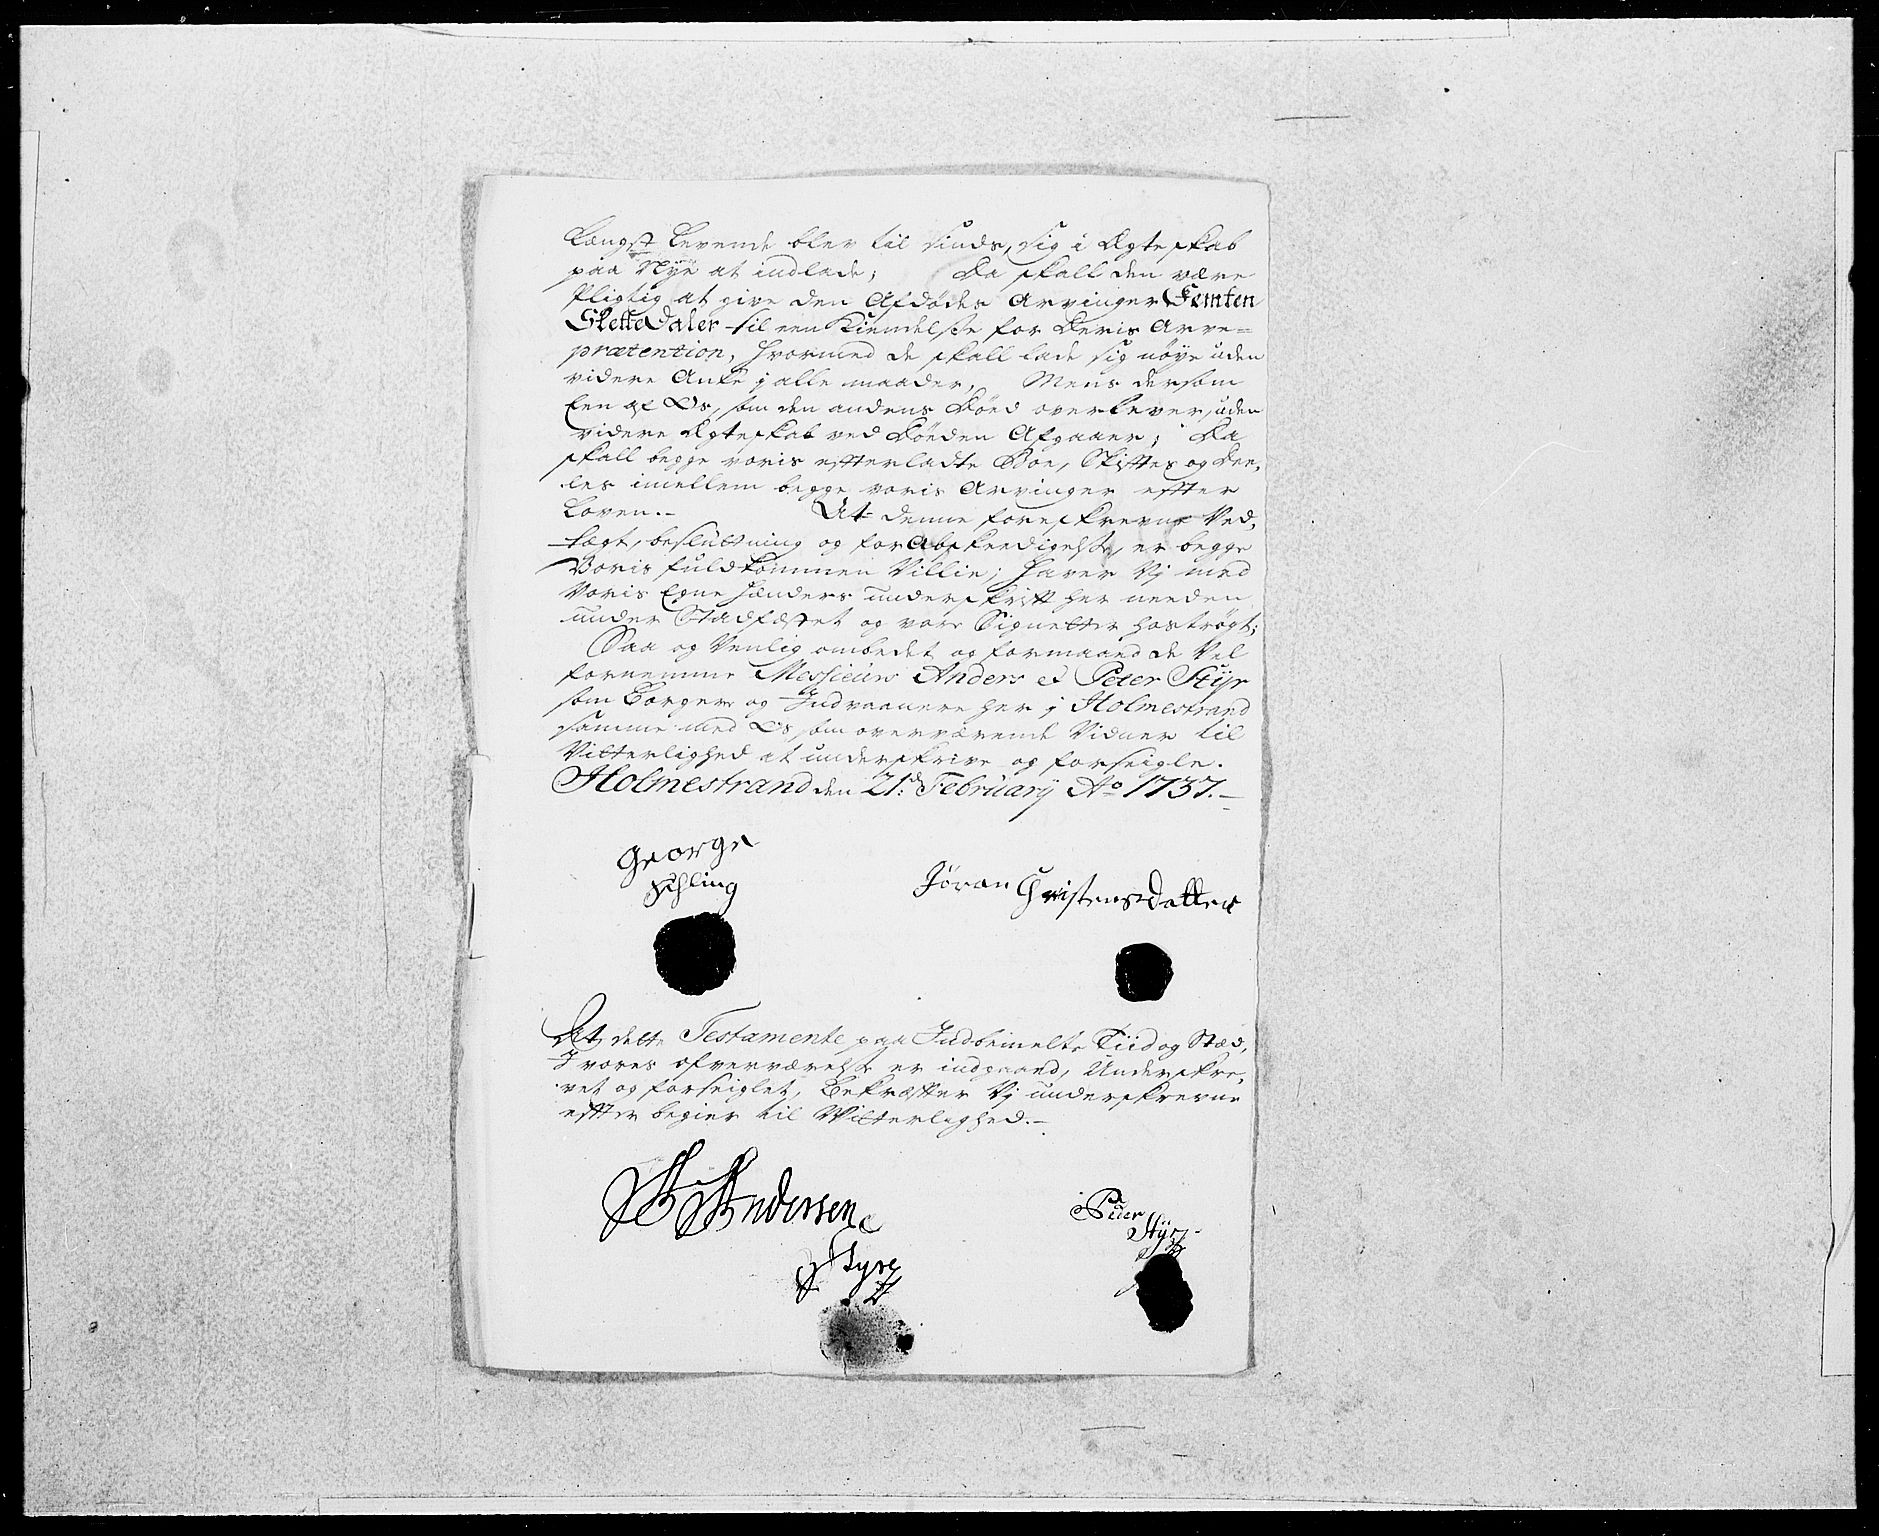 Længst Levende blev til sinds, sig i Ægteskab
paa Nÿe at indlade; Da skall den være
Pligtig at give den Afdødes Arvinger Femten
Slette Daler til een Kiendelsse for Deris Arve=
prætention, hvormed de skall lade sig nøye uden
videre Anke j alle maader, Mens dersom
Een af Os, som den andens Døed overlever, uden
videre Ægteskab ved Døden Afgaaer; Da
skall begge voris effterladte Boe, Skifftes og Dee,
les imellem begge voris Arvinger effter
Loven.-
At denne foreskrevne Ved,
tægt, besluttning og for Abskeedigelsse, er begge
Voris fuldkommen Villie; Haver Vj med
Voris Egne Hænders underskrifft her neden
under Stadfæstet og vore Signetter hoströgt;
Saa og Venlig ombedet og formaaed de Vel
fornemme Messieurs Anders et Peter Stÿr
som Borgere og Indvaanere her j Holmestrand
samme med Os som overværende Vidner til
Vitterlighed at underskrive og forseigle.
Holmestrand den 21: Februarÿ Ao 1737.-
George
Schling
Jöran Christens datter
At dette Testamente paa Indbemelte Tiid og Stæd,
I vores ofverværelsse er indgaaed, Underskre,
vet og forseiglet, Bekræffter Vj underskrevne
effter begier til Witterlighed.-
A Andersen
Styr
Peter
Stÿr